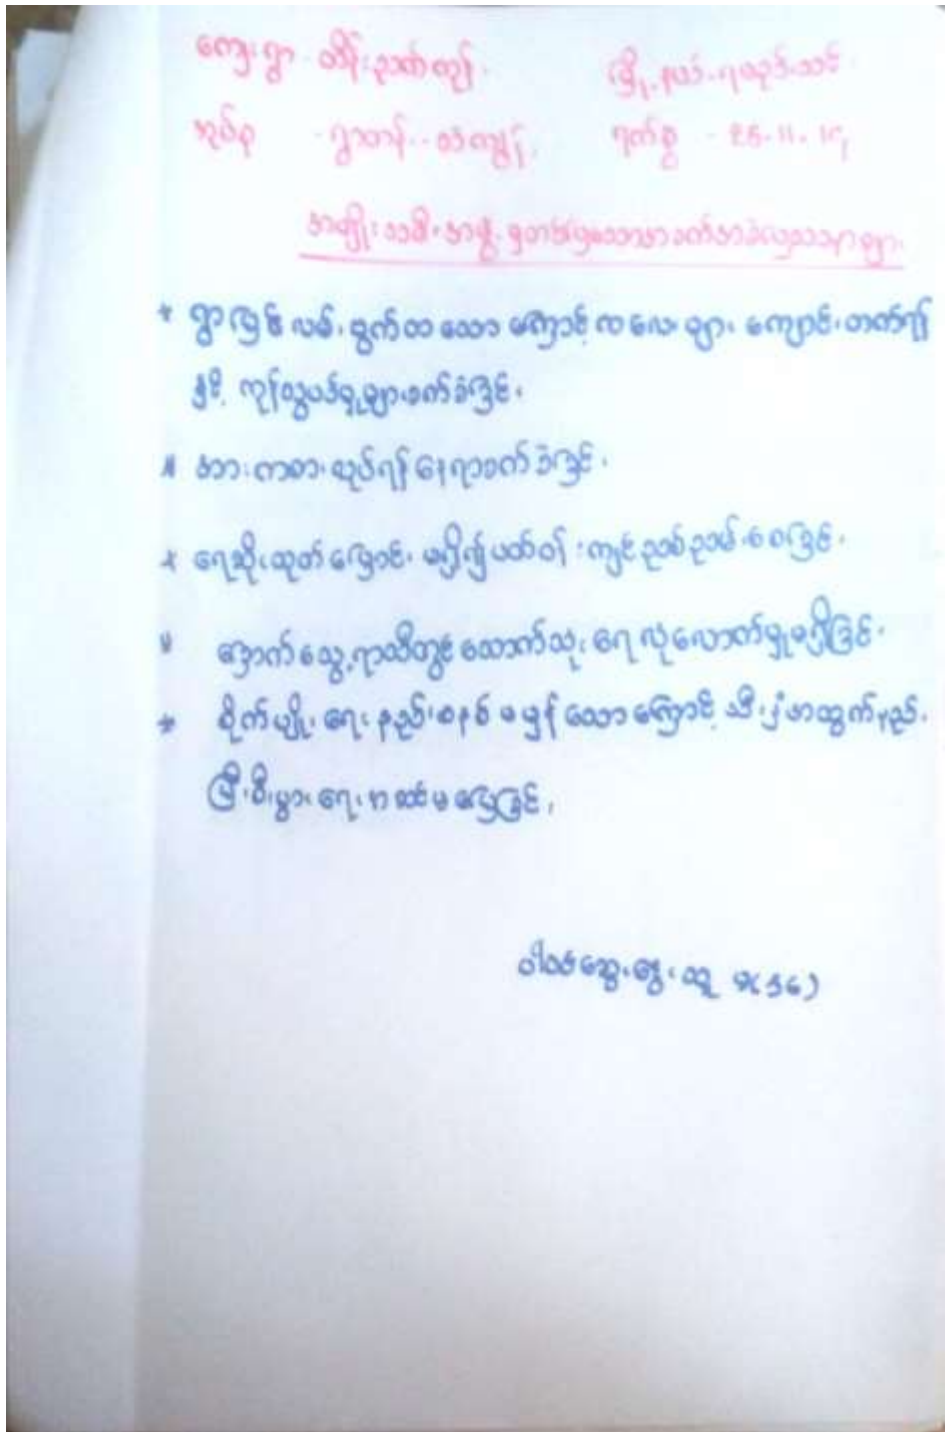 ကျေးရွာ - ထိန်းညှက်ကုန်း မြို့နယ် - ရသေ့တောင်
အုပ်စု - ရွာတန်း ရက်စွဲ - ၁၅-၁၁-၁၇
အမျိုးသမီးအဖွဲ့မှ အခက်အခဲပြဿနာများ
* ရွာမြင်းလမ်းပွက်ထသောကြောင့် ကလေးများ ကျောင်းတက်ရန်
နှင့် ကုန်သွယ်မှုများခက်ခဲခြင်း။
* အားကစားလုပ်ရန်နေရာခက်ခဲခြင်း။
* ရေဆိုးထုတ်မြောင်း မရှိ၍ပတ်ဝန်းကျင်ညစ်ညမ်းစေခြင်း။
* ခြောက်သွေ့ရာသီတွင်သောက်သုံးရေလုံလောက်မှုမရှိခြင်း။
* စိုက်ပျိုးရေးနည်းစနစ်မမှန်သောကြောင့် သီးနှံထွက်နည်း
ပြီး စီးပွားရေးအဆင်မပြေခြင်း။